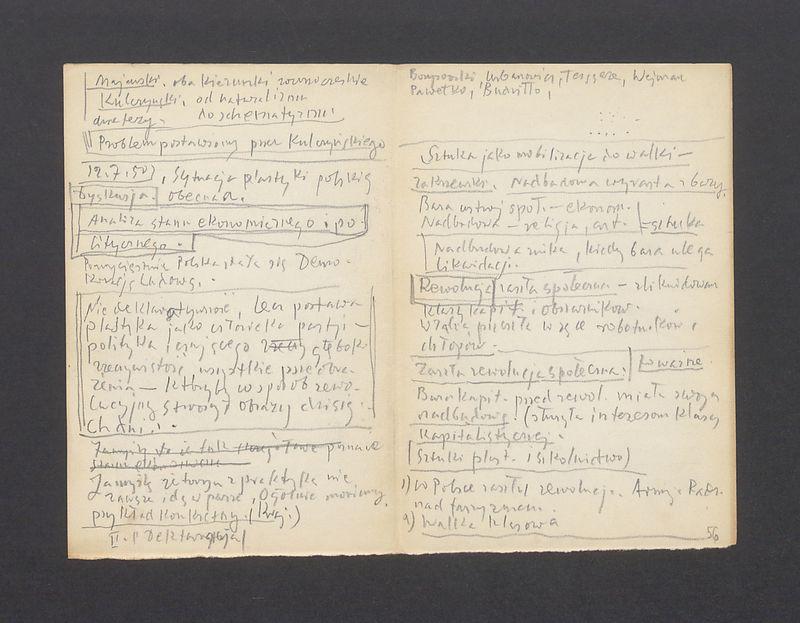 Majewski. oba kierunki równocześnie
Kulczyński. od naturalizmu
do schematyzmu.
Problem postawiony przez Kulczyńskiego
12.7.50, Sytuacja plastyki polskiej
Dyskusja. obecna.
Analiza stanu ekonomicznego i po-
litycznego.
Polska stała się Demo-
kracją Ludową.
Nie deklaratywność, lecz postawa
plastyka jako człowieka partyj-
polityka czującego głęboko
rzeczywistość, wszystkie przeobra-
żenia – któryby w sposób rewo-
lucyjny stworzył obrazy dzisiej.
Chwili.
Zamysły z praktyką nie
zawsze idą w parze, Ogólnie mówimy,
przykład konkretny. (Kraj.)
II. Deklaracja
Urbanowicz, Tessseyre, Wejman
Pawełko, Budziłło,
Sztuka jako mobilizacja do walki –
Zakrzewski. Nadbudowa wyrasta z bazy.
Baza ustrój społ. – ekonom.
Nadbudowa – religia, art. – sztuka
Nadbudowa znika, kiedy baza ulega
likwidacji.
Rewolucja zaszła społeczna – zlikwidowano
klasę kapit. i obszarników.
Władza przeszła w ręce robotników i
chłopów.
Zaszła rewolucja społeczna. to ważne.
Baza kapit. przed rewol. miała swoją
nadbudowę. (służyła interesom klasy
kapitalistycznej.
Sztuki plast. i szkolnictwo)
1) W Polsce zaszła rewolucja. Army. Radz.
nad faszyzmem.
2) Walka klasowa
56